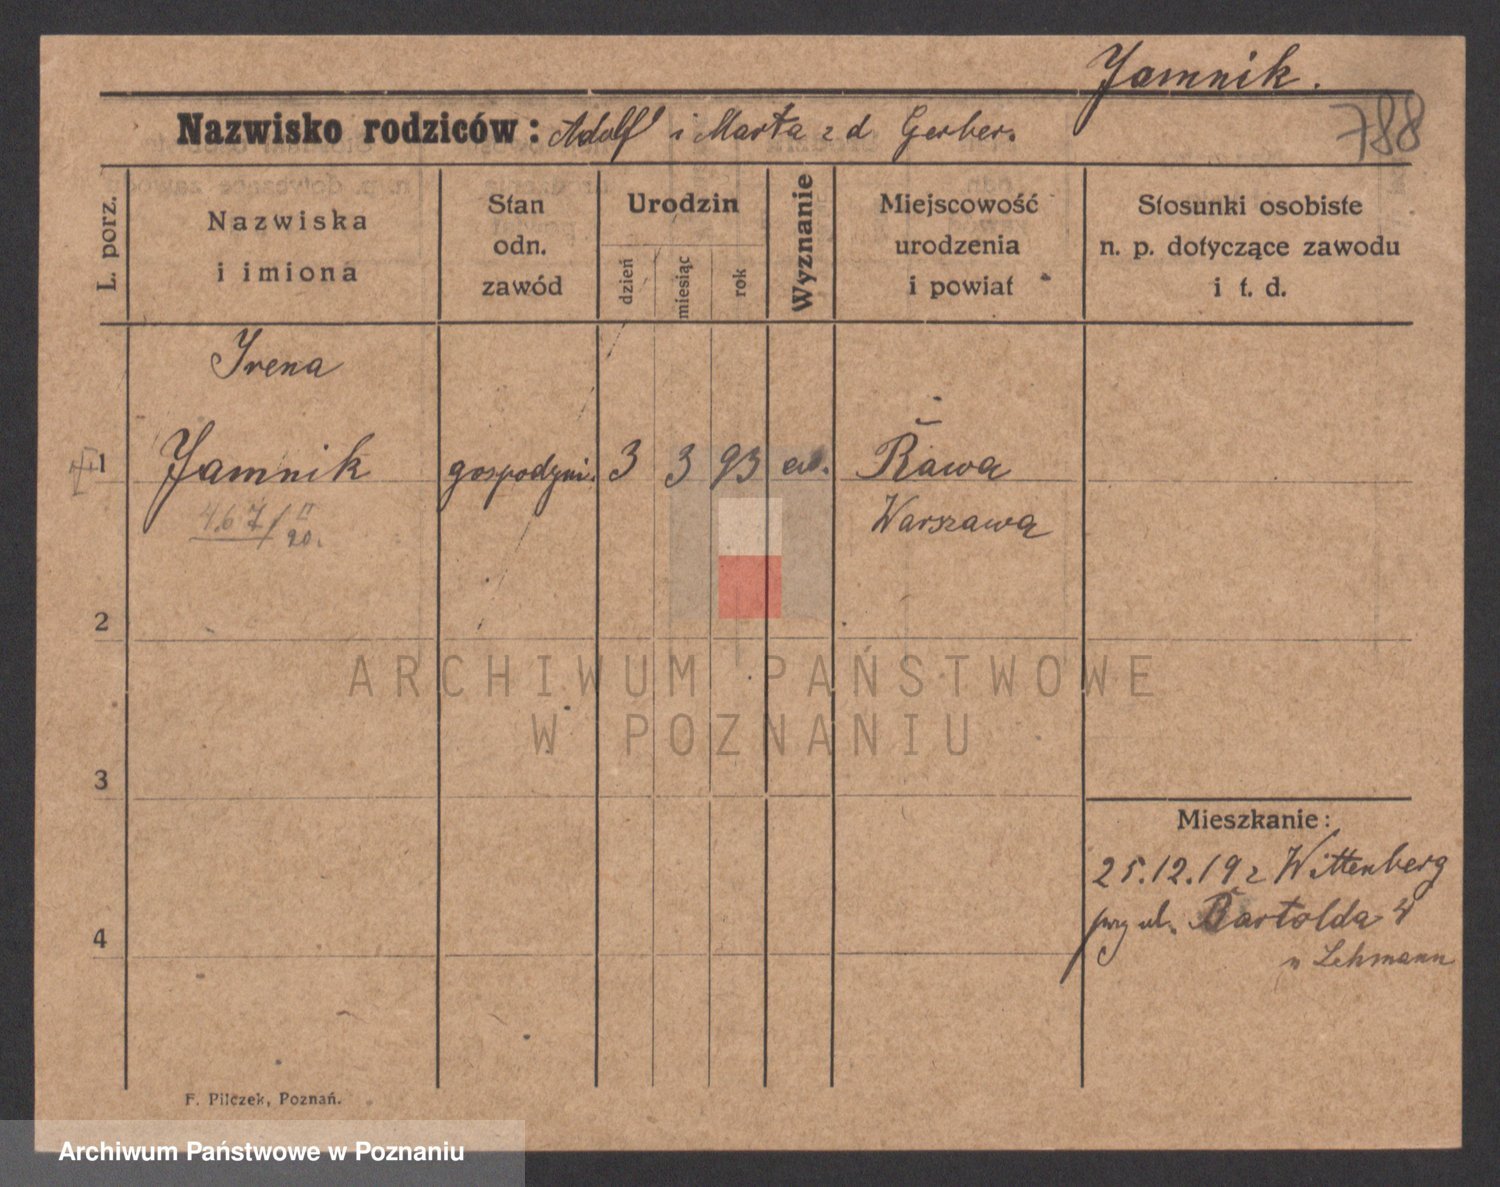 Jamnik.
788
Nazwisko rodziców: Adolf i Marta z d Gerber.
L. porz.
Nazwiska
i imiona
Stan
odn.
zawód
Urodzin
dzień
miesiąc
rok
Wyznanie
Miejscowość
urodzenia
i powiat
Stosunki osobiste
n. p. dotyczące zawodu
i t. d.
Irena
1 Jamnik gospodyni. 3 3 93 ew. Rawa
467/II 20.
Warszawa
2
3
4
Mieszkanie:
25.12.19 z Wittenberg
przy ul. Bartolda 4
u Lehmann
F. Pilczek, Poznań.
ARCHIWUM PAŃSTWOWE
W POZNANIU
Archiwum Państwowe w Poznaniu